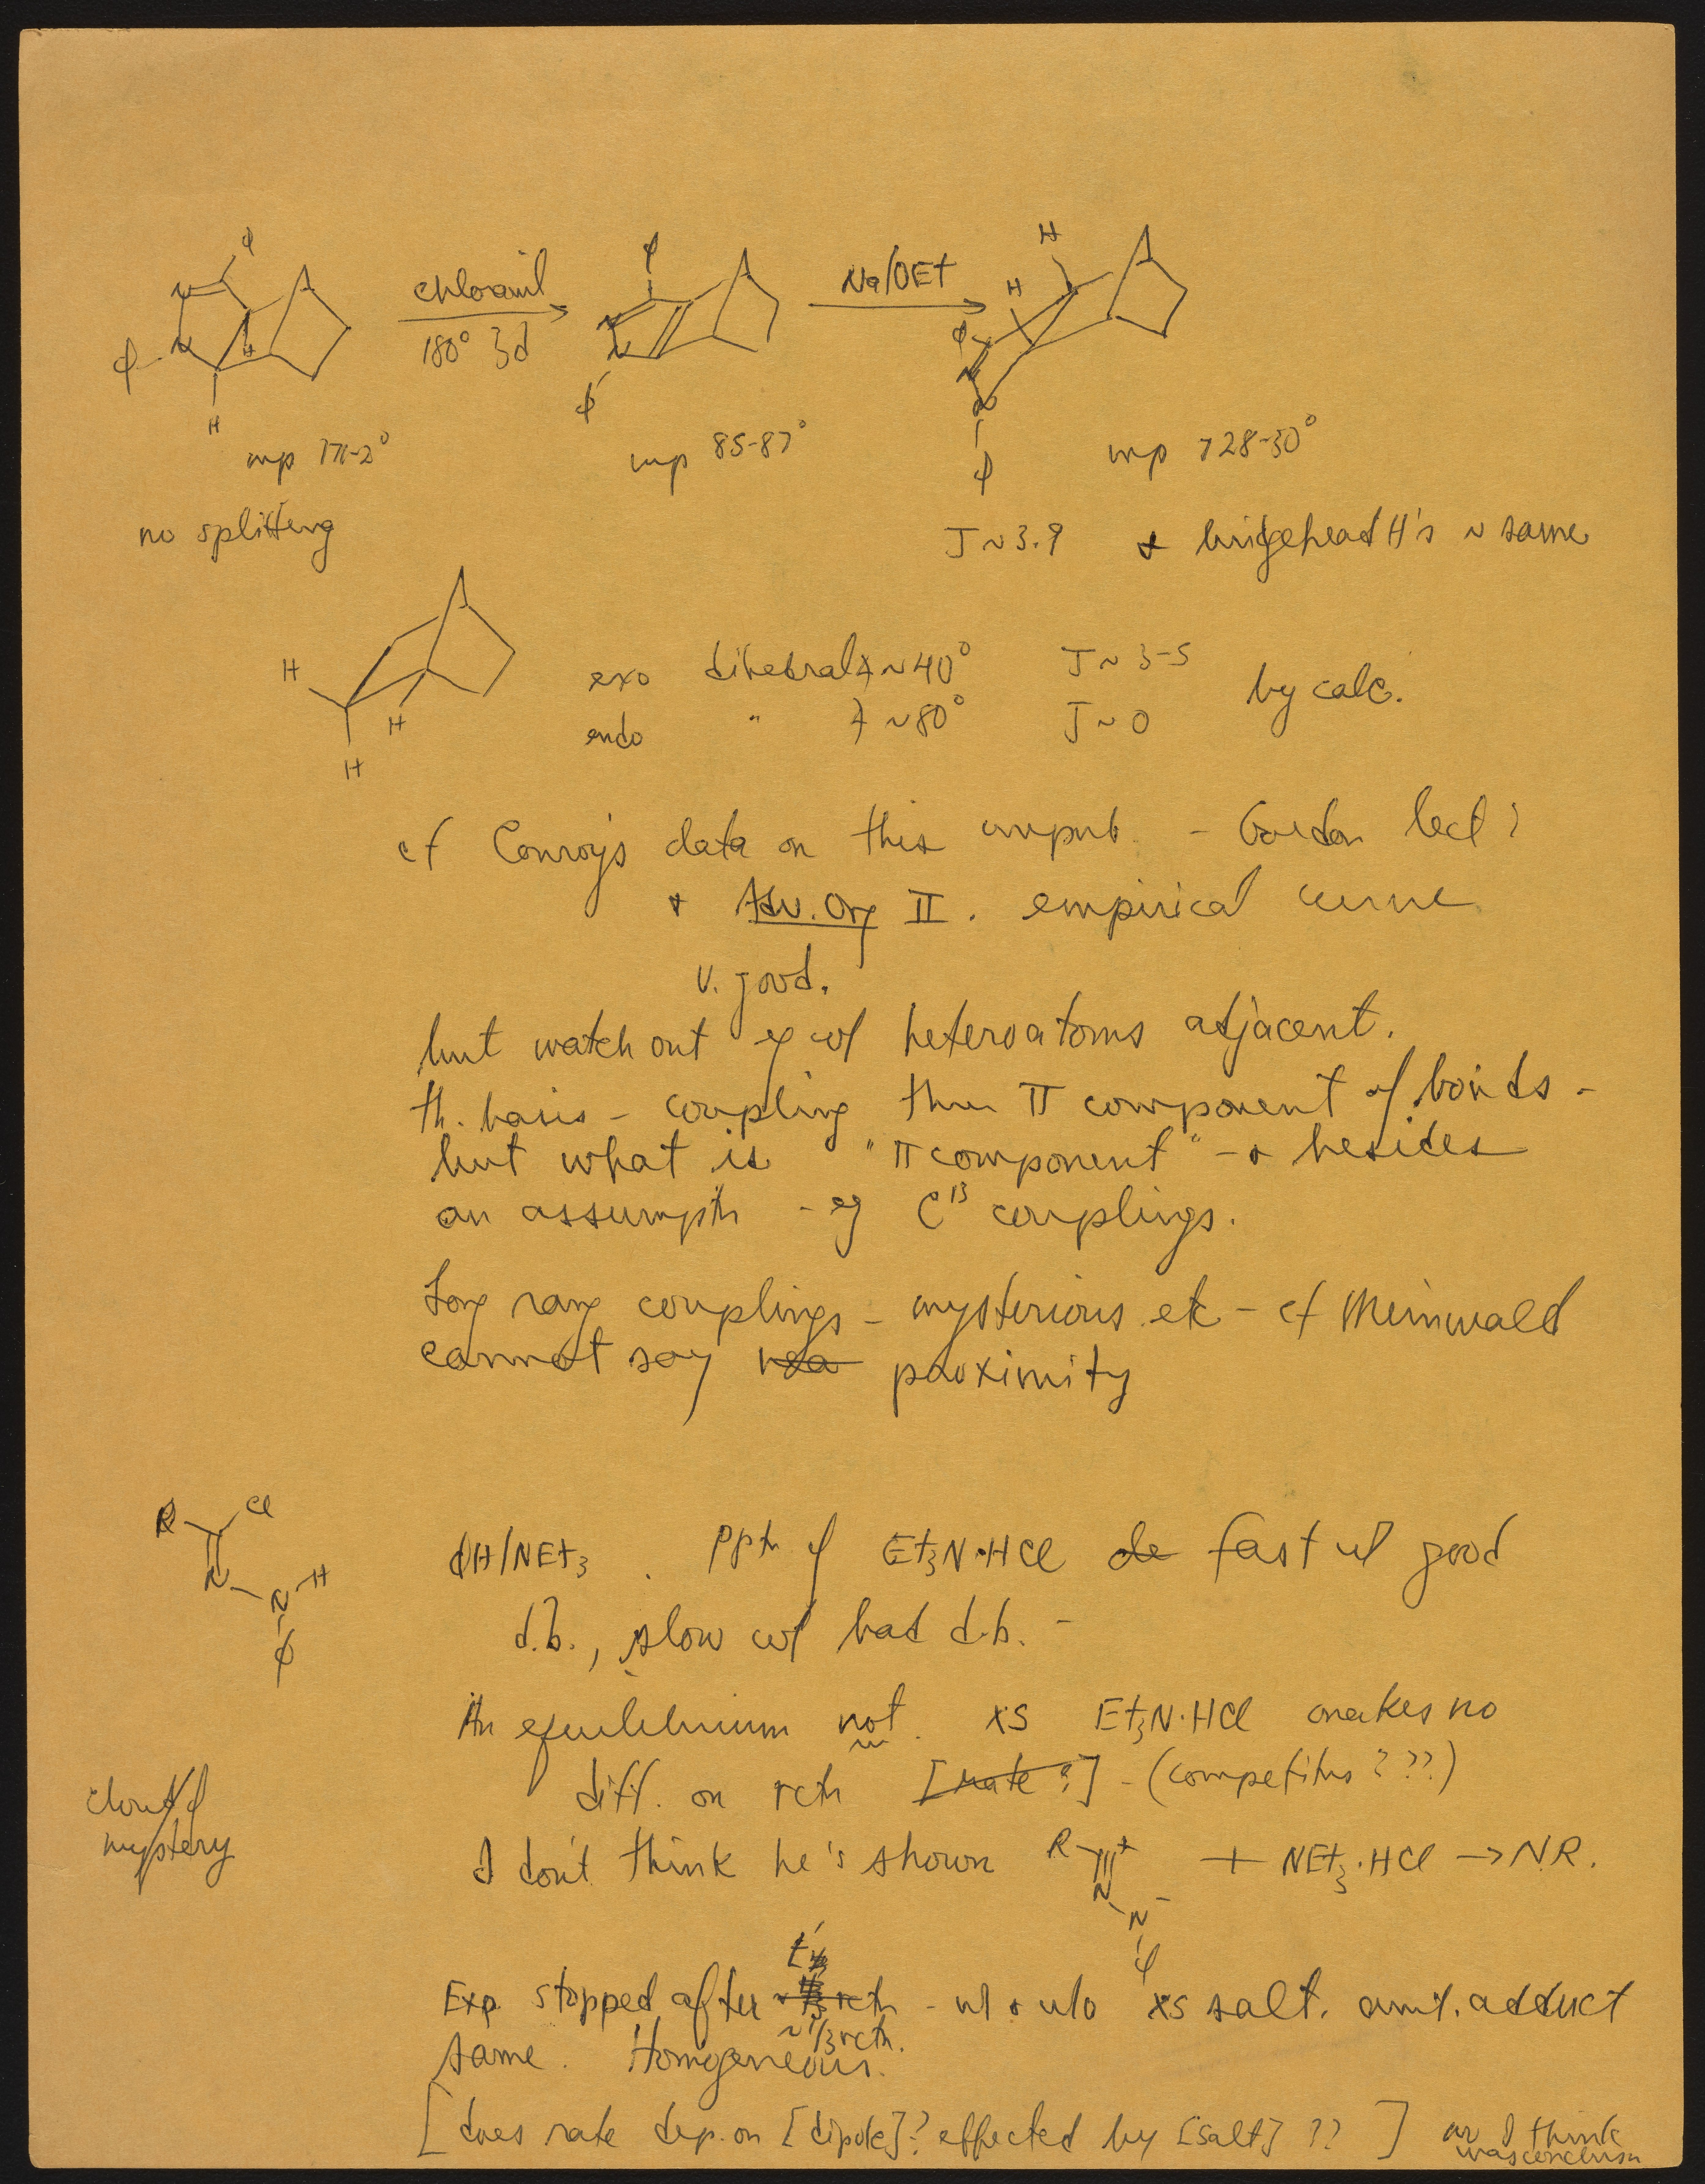 φ H φ H
N chloranil Na/OEt H
φ N H 180° 3d N N φ N N
H φ φ
mp 171-2° mp 85-87° mp 128-30°
no splitting J~3.9 + bridgehead H's ~ same
H exo dihedral ∡ ~40° J~3-5 by calc.
H H endo " ∡ ~80° J~0
cf Conroy's data on this unpub. - Gordon lect?
+ Adv. Org II. empirical curve
v. good.
but watch out eg w/ heteroatoms adjacent.
th. basis - coupling thru π component of bonds -
but what is "π component" - + besides
an assumptn - eg C¹³ couplings.
Long rang couplings - mysterious etc - cf Meinwald
cannot say proximity
R Cl
N N H φ
φH/NEt₃. pptn of Et₃N·HCl fast w/ good
d.b., slow w/ bad d.b. -
An equilibrium not. xs Et₃N·HCl makes no
diff. on rctn [rate?] - (competitns???)
cloud of
mystery
I don't think he's shown R + N N - φ + NEt₃·HCl → NR.
Exp. stopped after rctn - w/ + w/o xs salt. amt. adduct
~1/3 rctn.
same. Homogeneous.
[does rate dep. on [dipole]? effected by [salt]??] I think
was conclusn